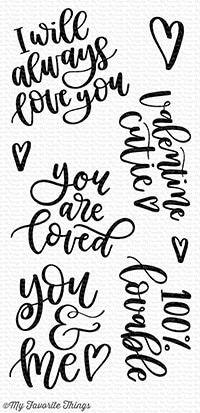 I will
always
love you
Valentine
cutie
you
are
loved
100%
lovable
you
&
me
©My Favorite Things